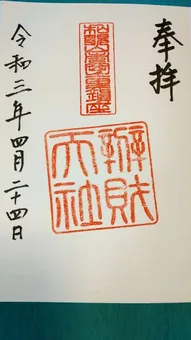 奉拝
辨財
天社
令和三年四月二十四日